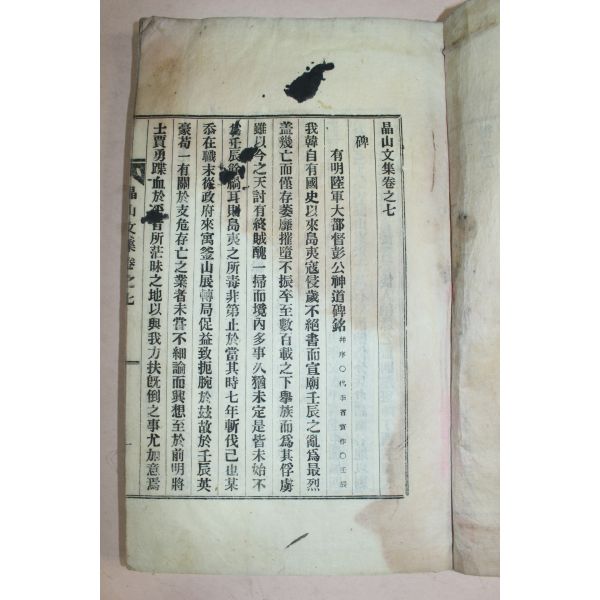 晶山文集卷之七
碑
有明陸軍大都督彭公神道碑銘 幷序○代李晋寶作○壬辰
我韓自有國史以來島夷寇侵歲不絕書而宣廟壬辰之亂爲最烈
盖幾亡而僅存萎靡摧墮不振卒至數百載之下擧族而爲其俘虜
雖以今之天討有終賊醜一掃而境內多事久猶未定是皆未始不
爲壬辰餘禍耳則島夷之所毒非第止於當其時七年斬伐已也某
忝在職末從政府來寓釜山展轉局促益致扼腕於玆故於壬辰英
豪苟一有關於支危存亡之業者未嘗不細論而興想至於前明將
士賈勇蹀血於 所茫昧之地以與我方扶旣倒之事尤加意焉
晶山文集卷之七